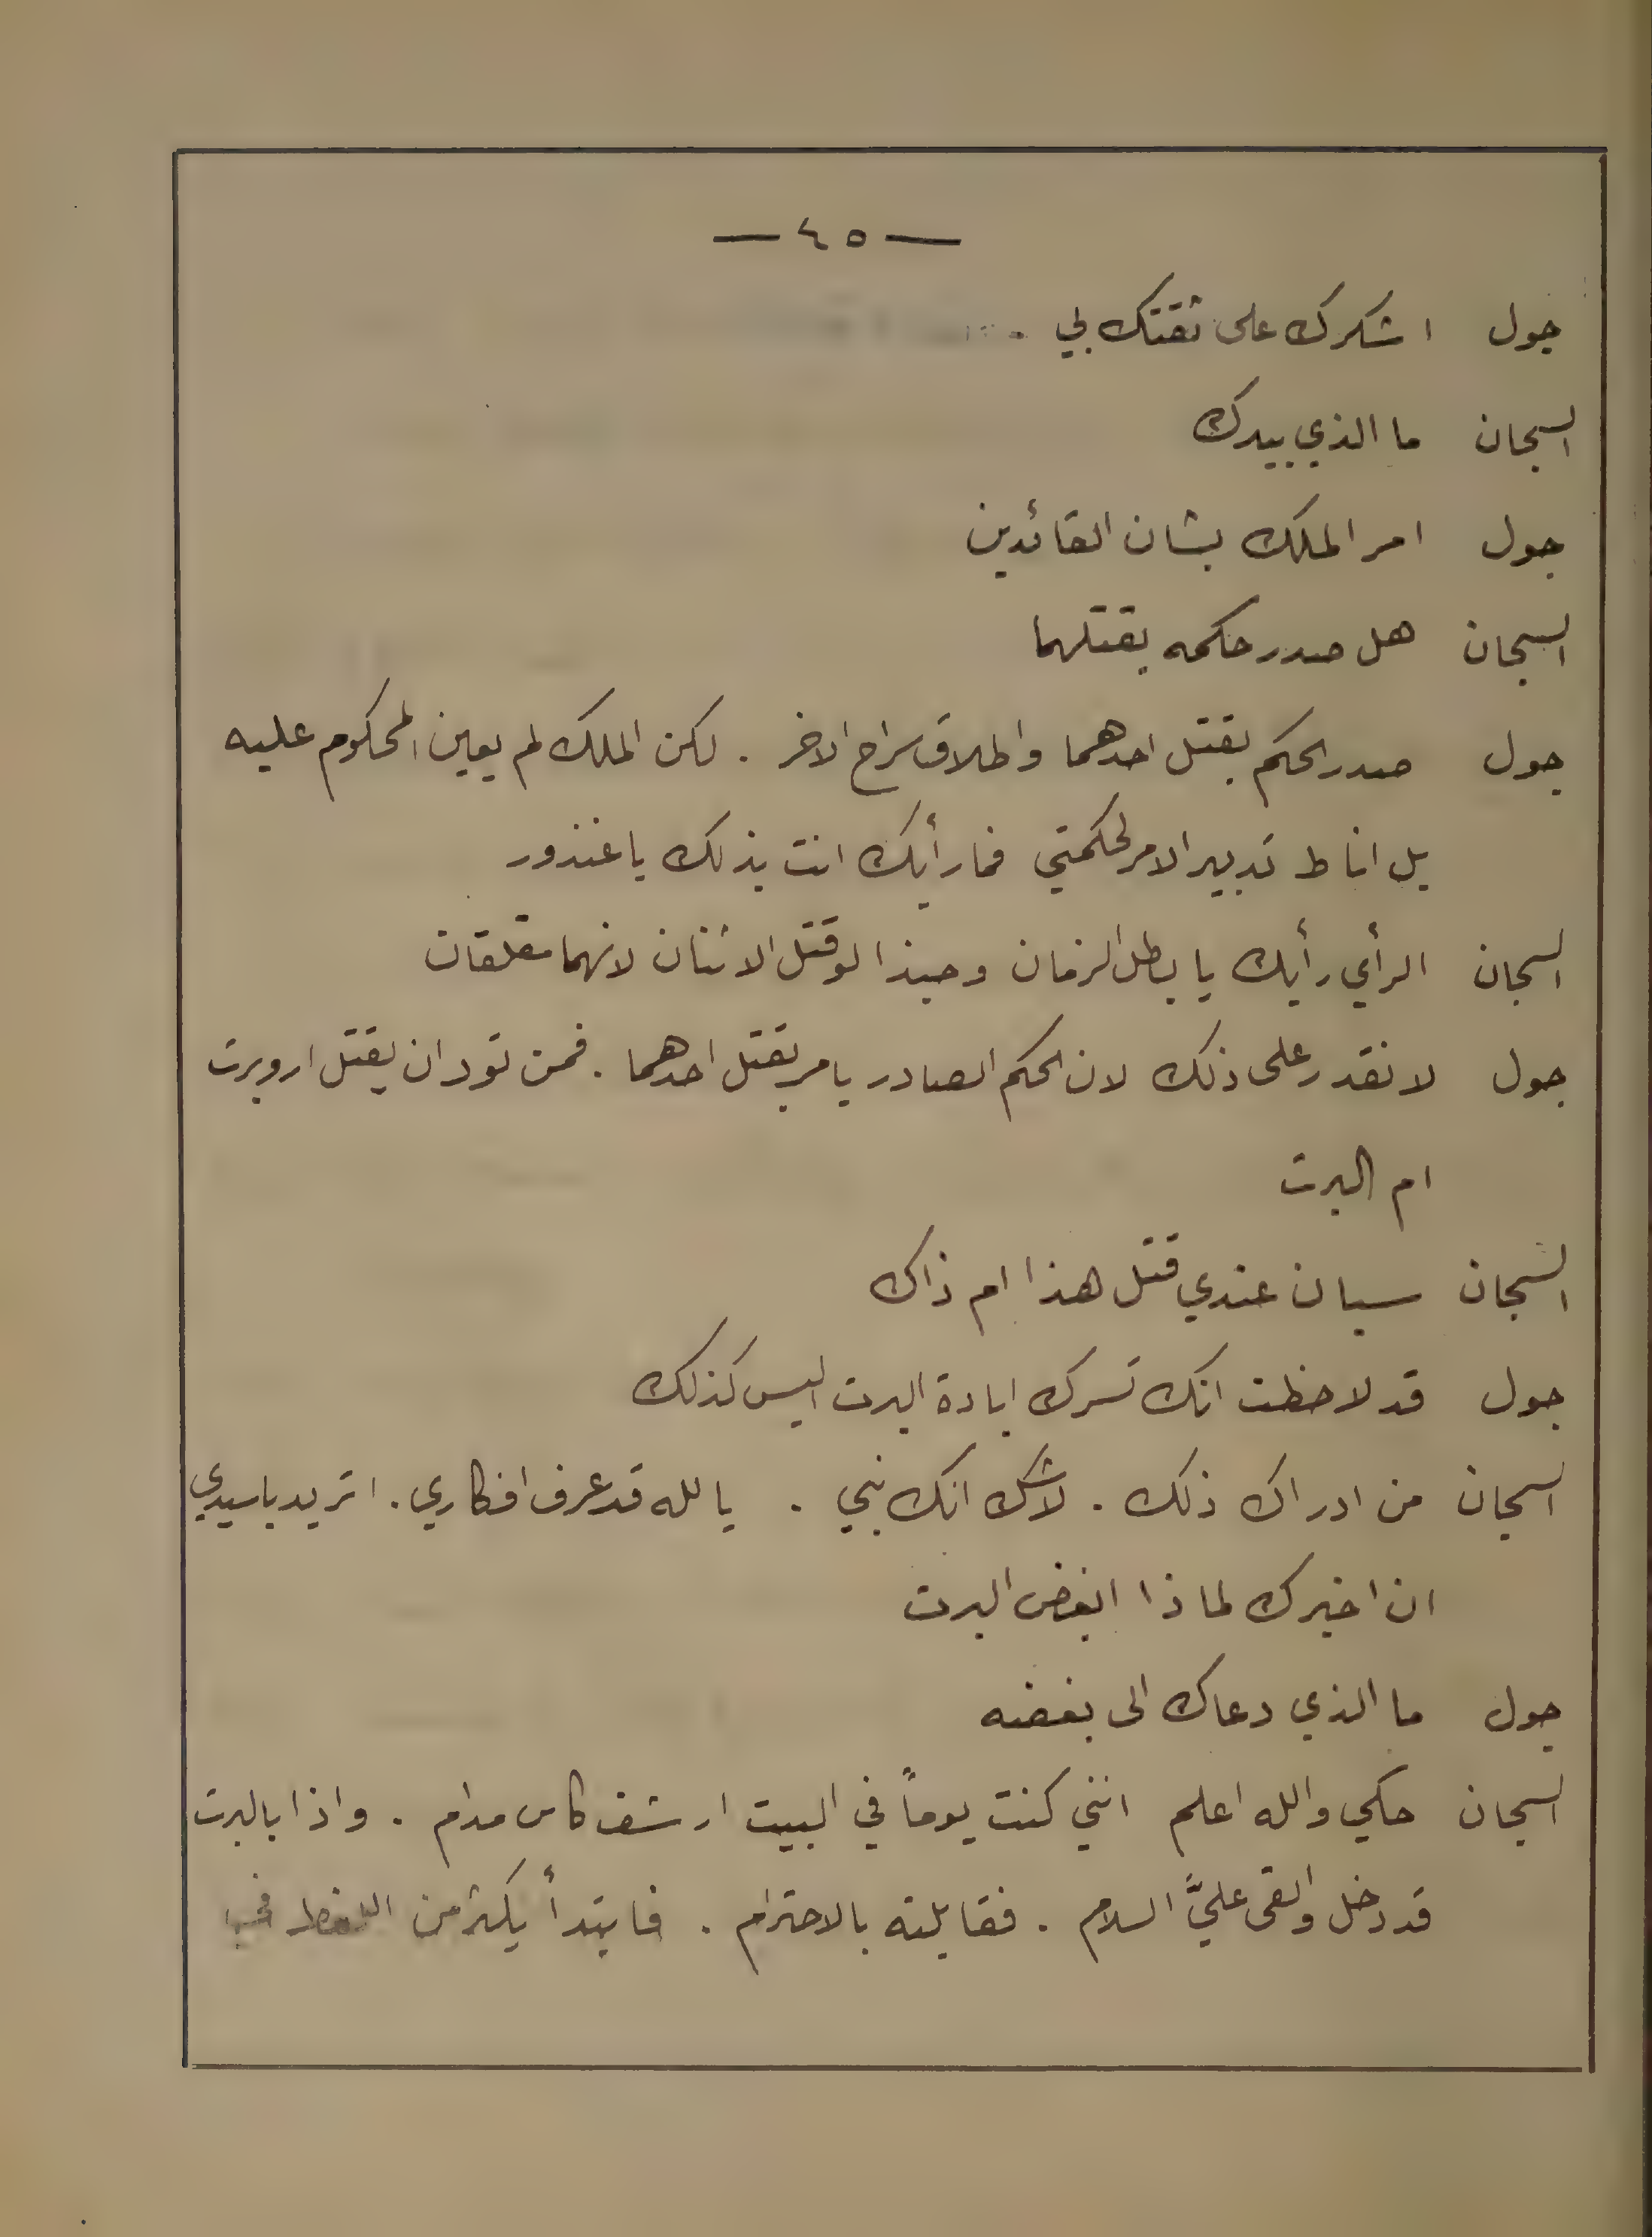 — ٤٥ —
جول اشكرك على ثقتك بي .
السجان ما الذي بيدك
جول امر الملك بشان القائدين
السجان هل صدر حكمه بقتلهما
جول صدر الحكم بقتل احدهما واطلاق سراح الاخر . لكن الملك لم يعين المحكوم عليه
بل اناط تدبير الامر لحكمتي فما رأيك انت بذلك يا غندور
السجان الرأي رأيك يا بطل الزمان وحبذا لو قتل الاثنان لانهما مقلقان
جول لا نقدر على ذلك لان الحكم الصادر يامر بقتل احدهما . فمن تود ان يقتل اروبرت
ام البرت
السجان سيان عندي قتل هذا ام ذاك
جول قد لاحظت انك تسرك ابادة البرت اليس كذلك
السجان من ادراك ذلك . لا شك انك نبي . يا لله قد عرف افكاري . اتريد يا سيدي
ان اخبرك لماذا ابغض البرت
جول ما الذي دعاك الى بغضه
السجان حكي والله اعلم انني كنت يوماً في البيت ارشف كاس مدام . واذا بالبرت
قد دخل والقى عليَّ السلام . فقابلته بالاحترام . فابتدأ يكثر من اللغط